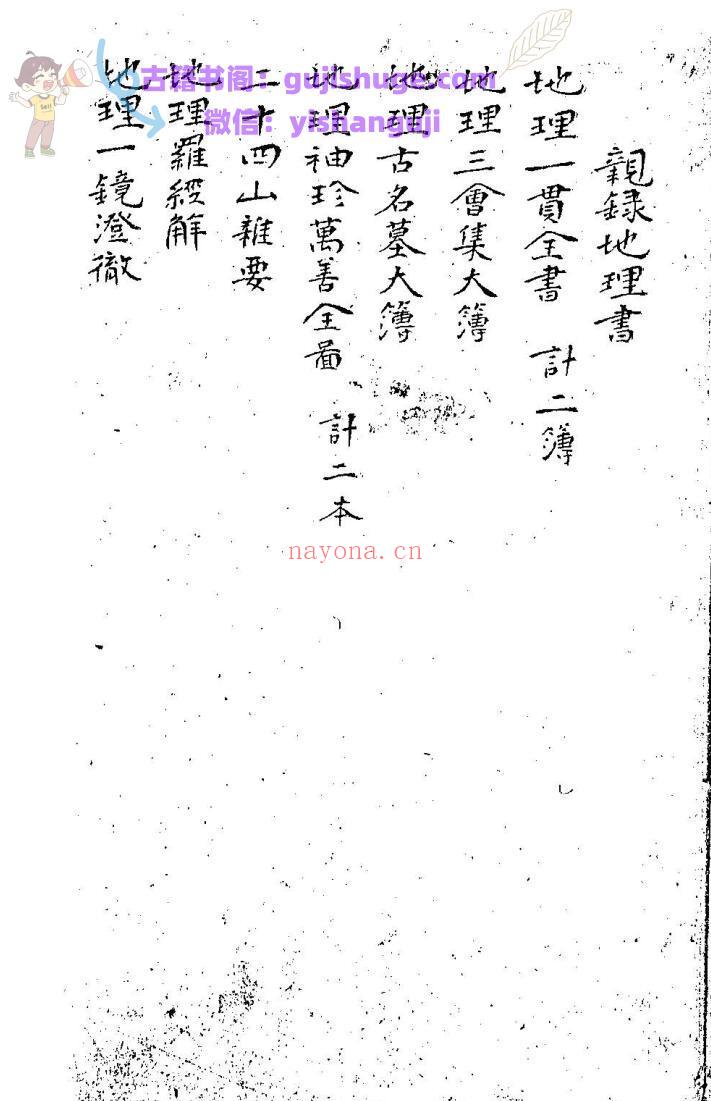 親録地理書
地理一貫全書 計二簿
地理三會集大簿
地理古名墓大簿
地理袖珍萬善全啚 計二本
二十四山雜要
地理羅經解
地理一鏡澄徹
古籍书阁：gujishuge.com
微信：yishanguji
nayona.cn